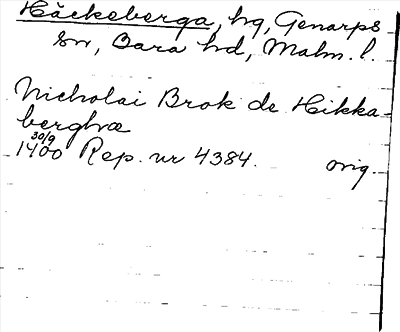 Häckeberga, hg, Genarps
sn, Bara hd, Malm. l.
Nicholai Brok de Hikka-
berghæ
30/9
1400 Rep. nr 4384. orig.